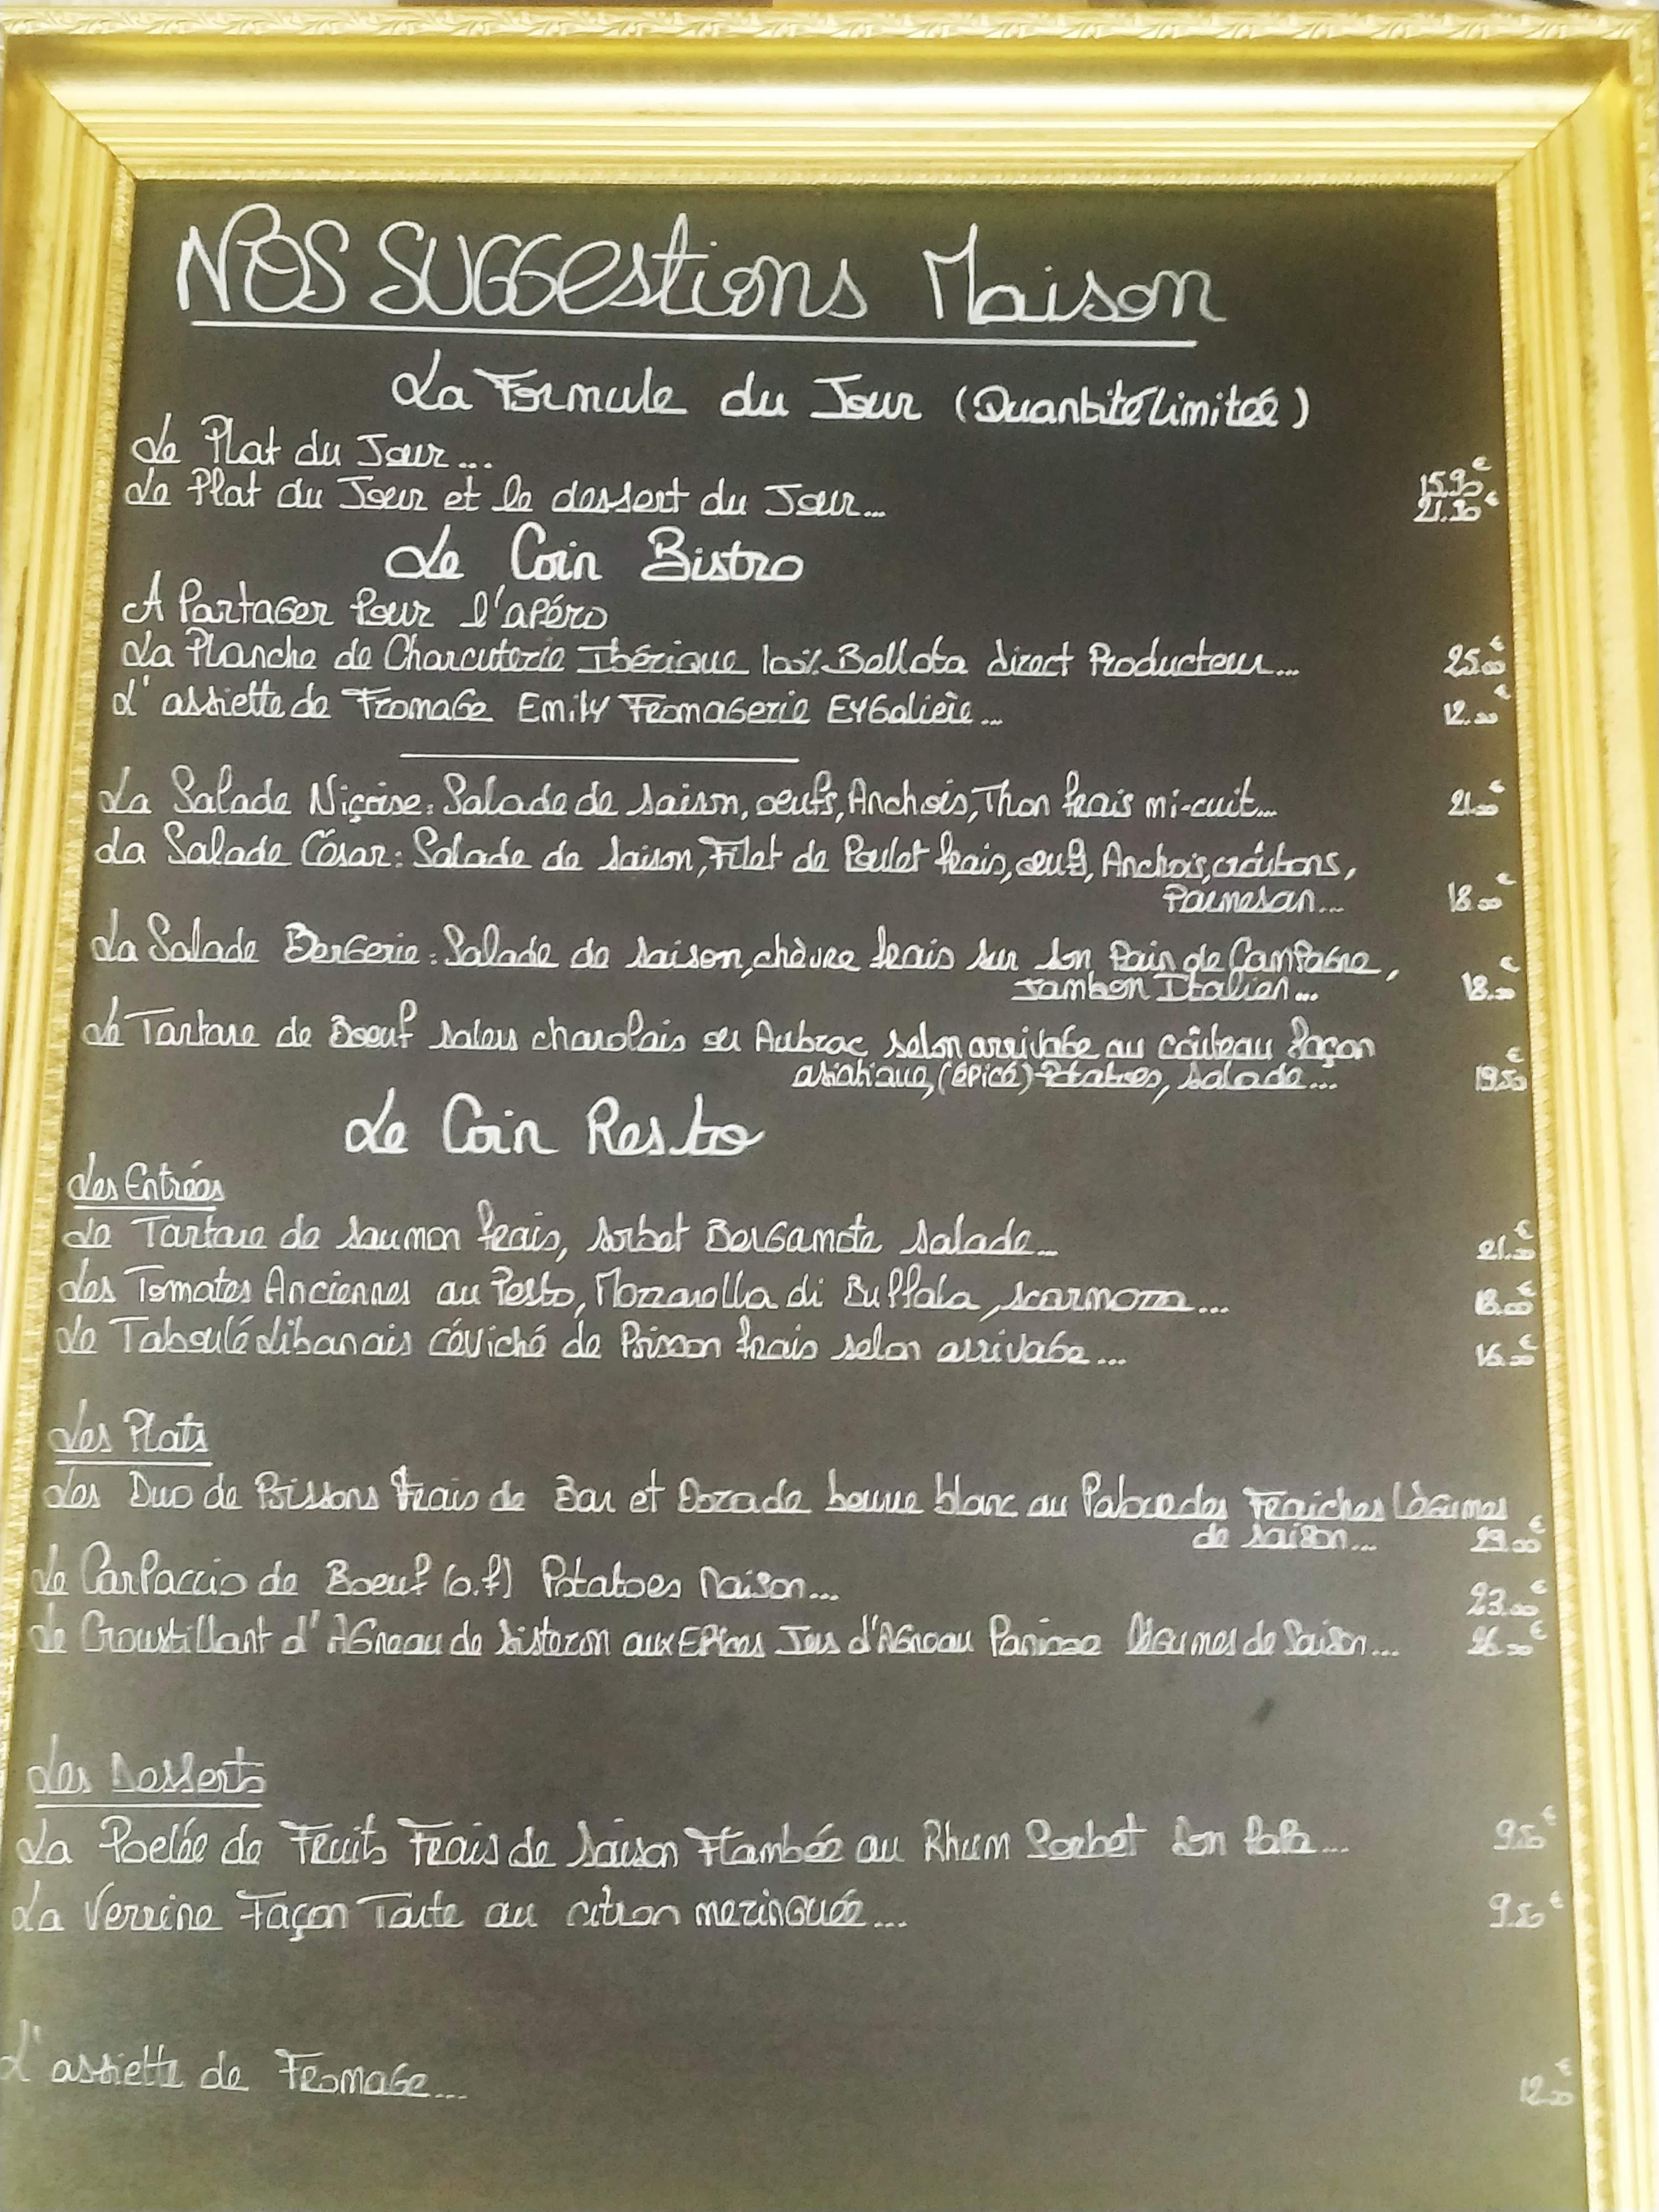 NOS SUGGestions Maison
La Formule du Jour (Quantité Limitée)
Le Plat du Jour... 15.90€
Le Plat du Jour et le dessert du Jour... 21.30€
Le Coin Bistro
A Partager Pour l'apéro
La Planche de Charcuterie Ibérique 100% Bellota direct Producteur... 25.00€
L'assiette de Fromage Emily Fromagerie Eygalière... 12.00€
La Salade Niçoise: Salade de saison, oeufs, Anchois, Thon frais mi-cuit... €
La Salade César: Salade de saison, Filet de Poulet frais, oeuf, Anchois, croûtons,
Parmesan... 18.00€
La Salade Bergerie: Salade de saison, chèvre frais sur son Pain de Campagne,
Jambon Italien... €
Le Tartare de Boeuf salers charolais ou Aubrac selon arrivage au coûteau façon
asiatique, (épicé) Potatoes, salade... 19.50€
Le Coin Resto
Les Entrées
Le Tartare de saumon frais, sorbet Bergamote salade... €
Les Tomates Anciennes au Pesto, Mozzarella di Buffala, scarmozza... 18.00€
Le Taboulé Libanais céviché de Poisson frais selon arrivage... €
Les Plats
Les Duo de Poissons frais de Bar et Dorade beurre blanc au Fraiches Légumes
de saison... 29.00€
Le Carpaccio de Boeuf (o.f) Potatoes Maison... 23.00€
Le Croustillant d'Agneau de Sisteron aux Epices Jus d'Agneau Panisse légumes de Saison... €
Les Desserts
La Poelée de Fruits Frais de Saison Flambée au Rhum Sorbet Don Papa... 9.50€
La Verrine Façon Tarte au citron meringuée... 9.50€
L'assiette de Fromage... €